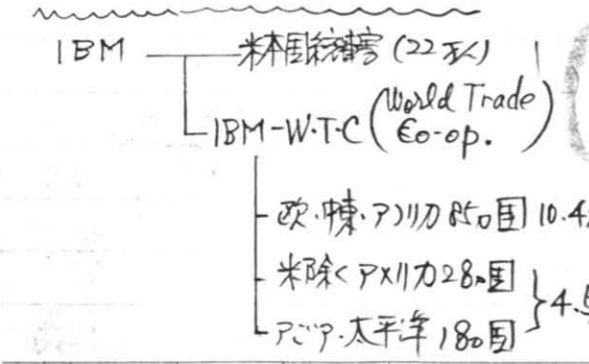 IBM 米本国統轄 (22万人)
IBM-W・T・C (World Trade Co-op.)
欧・中東・アフリカ 85ヶ国 10.4
米除くアメリカ 28ヶ国
アジア・太平洋 18ヶ国
4.5